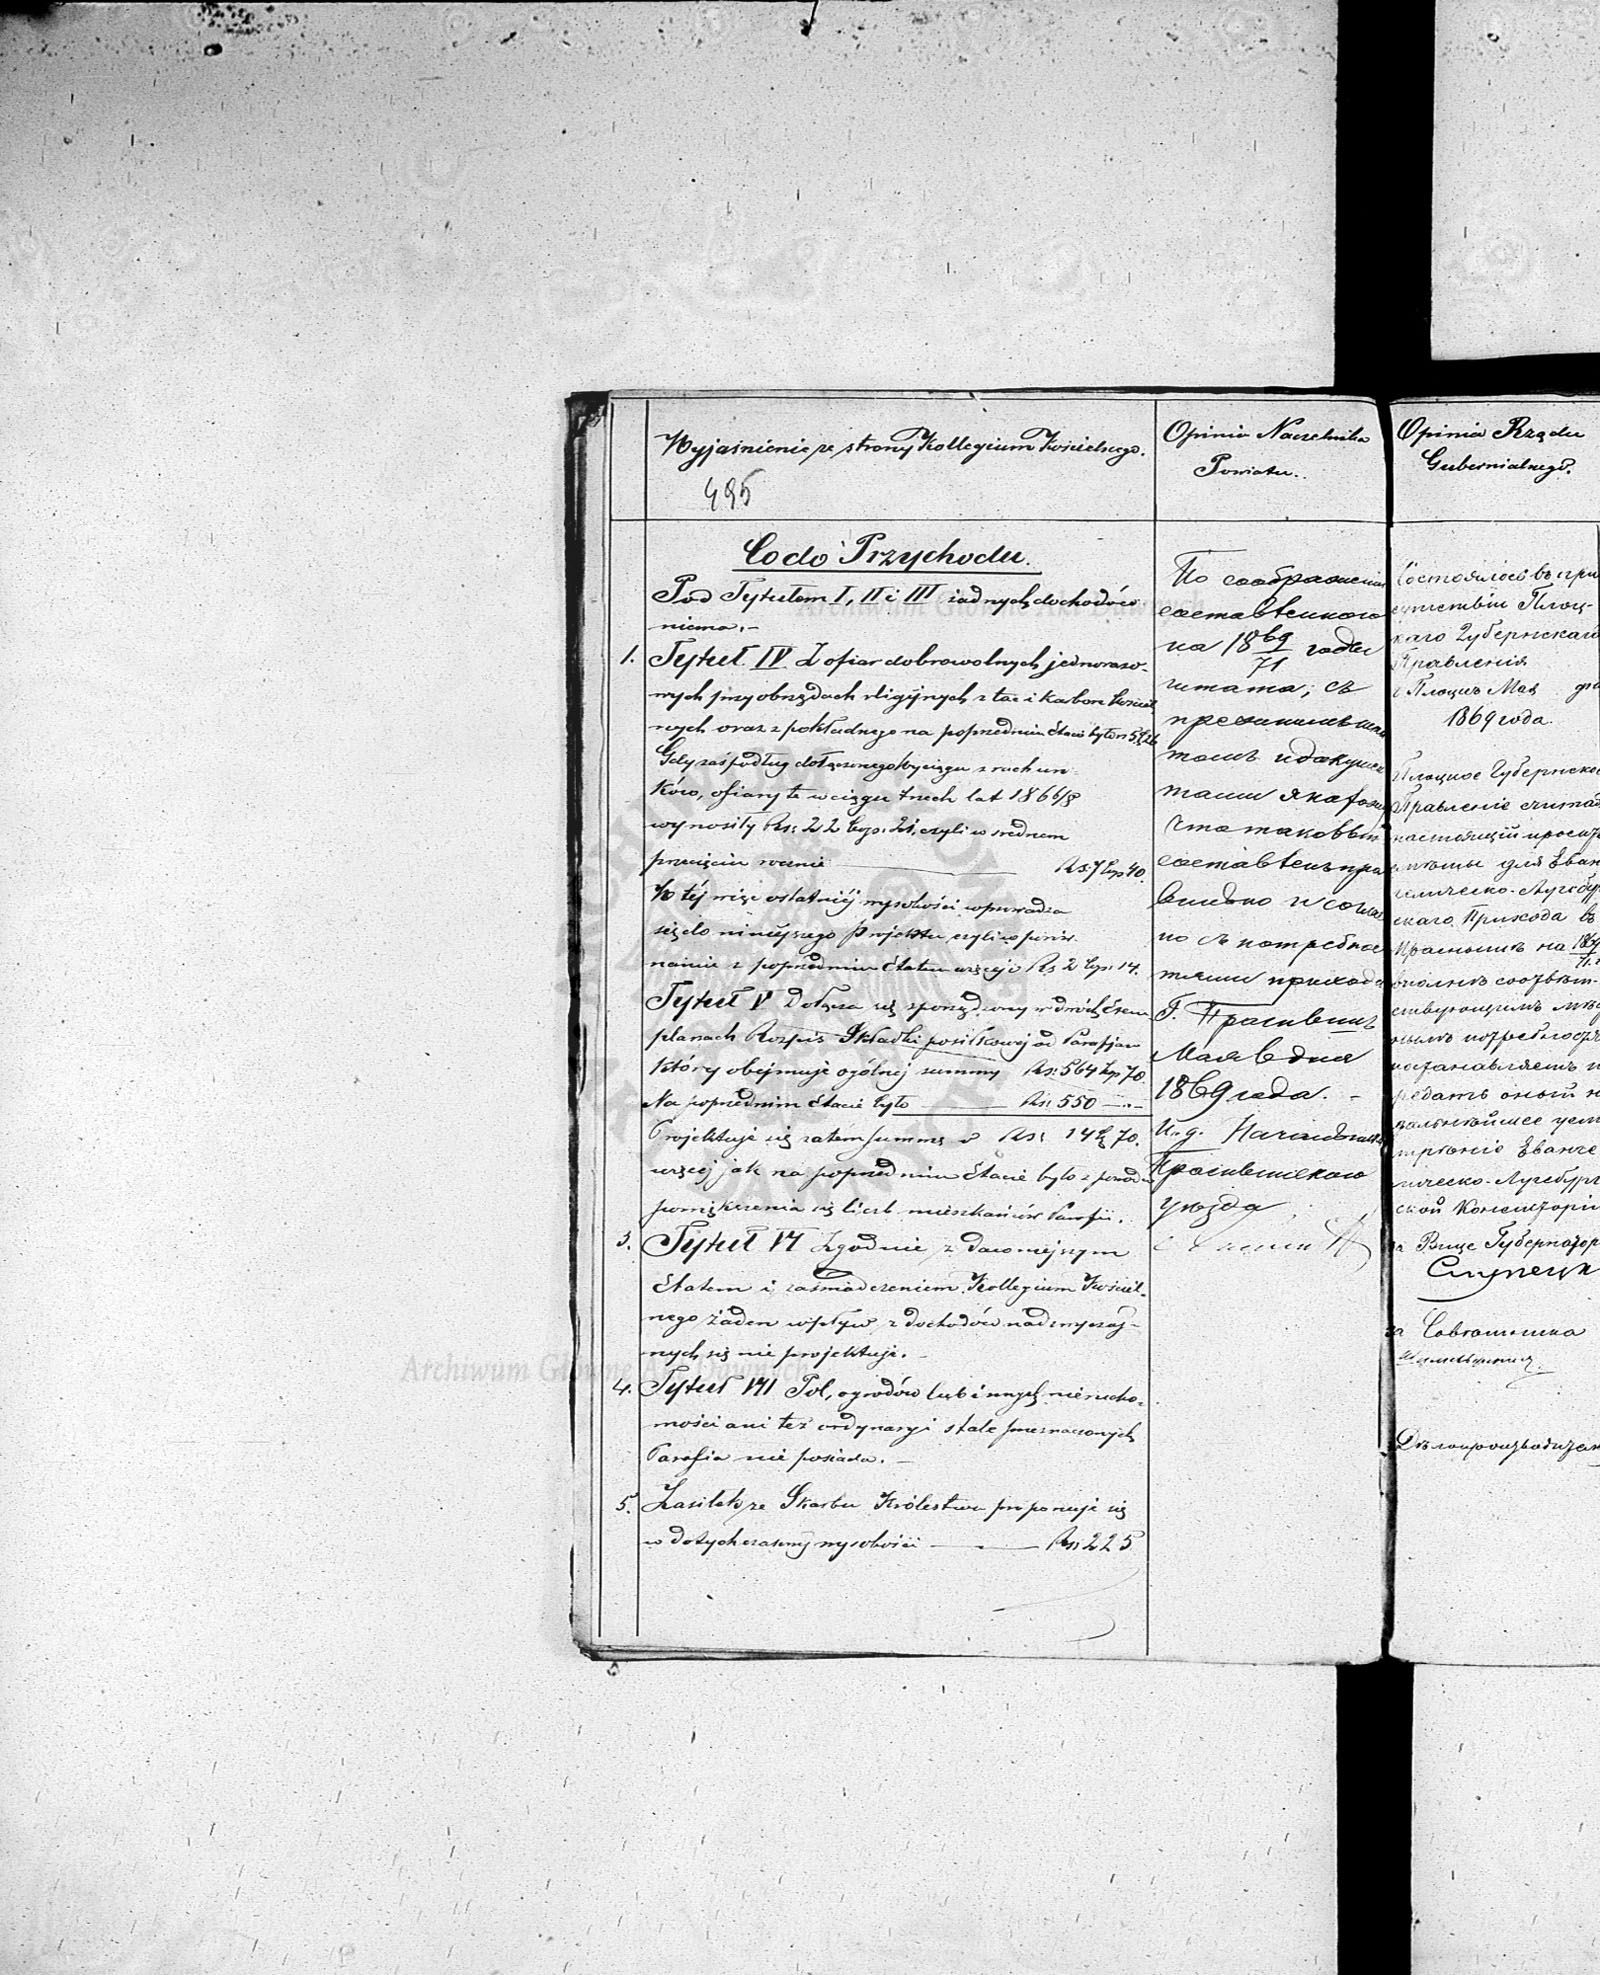 Wyjaśnienie ze strony Kollegium Kościelnego.
495
Co do Przychodu.
Pod Tytułem I, II i III żadnych dochodów
niema. –
1. Tytuł IV. Z ofiar dobrowolnych jednorazo-
wych przy obrzędach religijnych z tac i karbon Kościel
nych oraz z pokładnego na poprzednim Etacie było rs 5
Gdy zaś podług dołączonego Wyciągu z rachun
ków, ofiary te w ciągu trzech lat 1866/8
wynosiły Rs: 22 kop. 21, czyli w średnem
przecięciu rocznie Rs: 7 kop 40.
W téj więc ostatniéj wysokości wprowadza
się do niniejszego Projektu czyli w porów
naniu z poprzednim Etatem więcéj o Rs 2 kop: 14.
Tytuł V Dołącza się sporządzony w dwóch Exem
planach Rozpis Składki posiłkowej od Parafjan
który obejmuje ogólnej summy Rs: 564 kop 70.
Na poprzednim Etacie było Rs: 550 –
Projektuje się zatem summę o Rs: 14 k 70.
więcej jak na poprzednim Etacie było z powodu
powiększenia się liczb mieszkańców Parafii.
3. Tytuł VI Zgodnie z dawniejszym
Etatem i zaświadczeniem Kollegium Kościel-
nego żaden wpływ z dochodów nadzwyczaj-
nych się nie projektuje. –
4. Tytuł VII Pol, ogrodów lub innych nierucho-
mości ani też ordynaryi stale przeznaczonych
Parafia nie posiada. –
5. Zasiłek ze Skarbu Królestwa proponuje się
w dotychczasowej wysokości Rs: 225
Opinia Naczelnika
Powiatu.
По соображении
составленного
на 18 69/71 годы
штата, съ
тому и документ
тами я нахожу
что таковый
составленъ пра
вильно и соглас
но съ потребнос
тями прихода
Г. Праснышъ
Мая 6 дня
1869 года. –
И. д. Начальника
Праснышскаго
уѣзда
Opinia Rządu
Gubernialnego.
Состоялось въ при
сутствіи Плоц-
каго Губернскаго
Правленія
г Плоцкъ Мая дня
1869 года.
Плоцкое Губернское
Правленіе считая
настоящій проектъ
для Еван
гелическо-Аугсбур
скаго Прихода въ
Праснышѣ на 1869/71
вполнѣ соотвѣт-
ствующимъ мѣс
нымъ потребностя
постановляетъ п
редать оный н
Еванге
лическо-Аугсбург
ской Консисторіи
за Вице Губернатор
за Совѣтника
Дѣлопроизводител